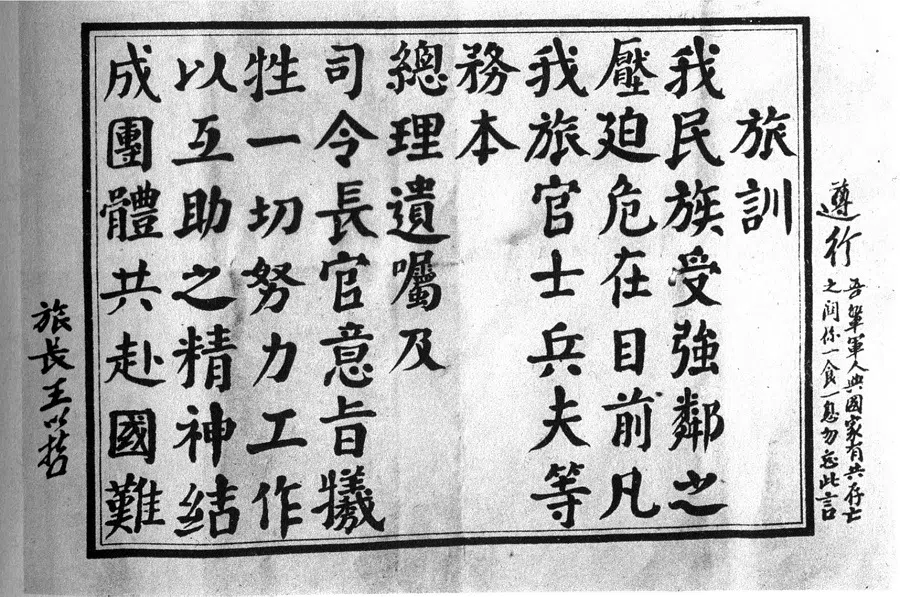 遵行
吾輩軍人與國家有共存亡
之關係一食一息勿忘此言
旅訓
我民族受強鄰之
壓迫危在目前凡
我旅官士兵夫等
務本
總理遺囑及
司令長官意旨犧
牲一切努力工作
以互助之精神結
成團體共赴國難
旅長王以哲